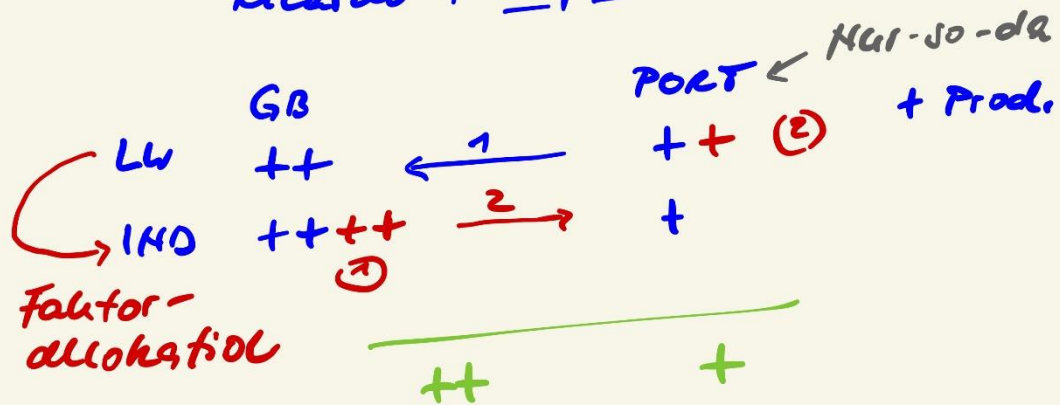 Nur-so-da
GB PORT + Prod.
LW ++ ← 1 + + (2)
IND ++++ 2 → +
(1)
Faktor-
allokation
++ +